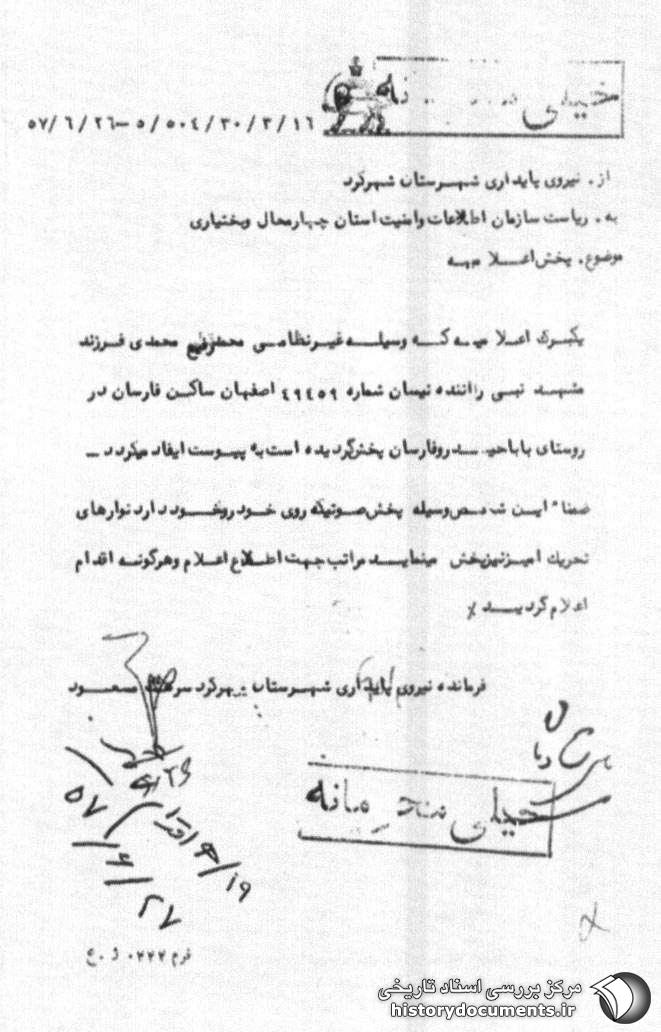 خیلی
۵۷/۶/۲۶–۵/۵۰۴/۳۰/۳/۱۶
از . نیروی پایداری شهرستان شهرکرد
به . ریاست سازمان اطلاعات وامنیت استان چهارمحال وبختیاری
موضوع . پخش اعلامیه
یکبرگ اعلامیه که وسیله غیرنظامی محمد رفیع محمدی فرزند
مشهد نبی راننده نیسان شماره ۴۹۴۵۹ اصفهان ساکن فارسان در
روستای باباحیدروفارسان پخش گردیده است به پیوست ایفاد میگردد –
ضمناً این شخص وسیله پخش صوتیکه روی خودروخود دارد نوارهای
تحریک آمیزنیزپخش مینماید مراتب جهت اطلاع اعلام وهرگونه اقدام
اعلام گردید
فرمانده نیروی پایداری شهرستان شهرکرد سرهنگ مسعود
خیلی محرمانه
۵۷
۶
۲۷
۱۹
فرم ۰۲۲۲
مرکز بررسی اسناد تاریخی
historydocuments.ir